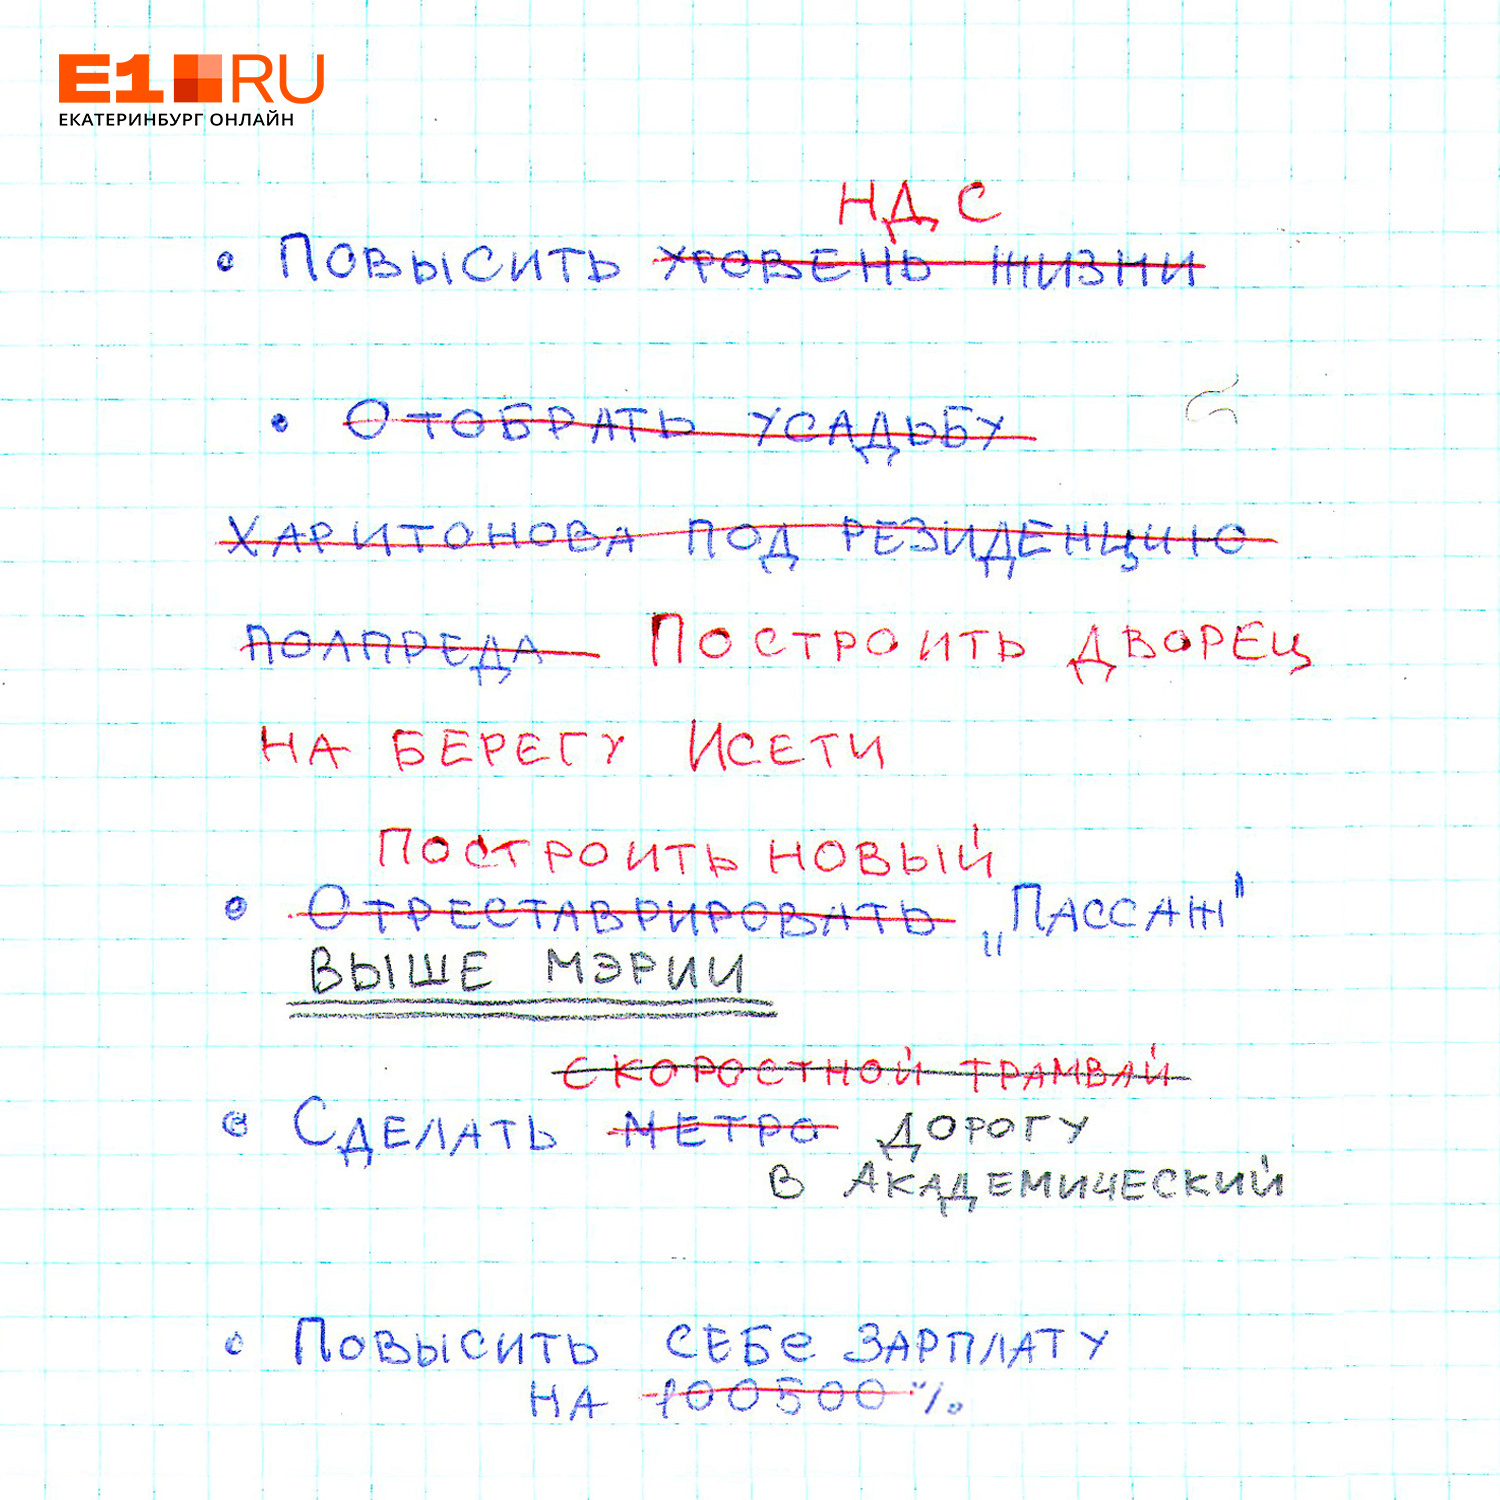 E1.RU
ЕКАТЕРИНБУРГ ОНЛАЙН
НДС
• Повысить уровень жизни
• Отобрать усадьбу
Харитонова под резиденцию
полпреда Построить дворец
на берегу Исети
Построить новый
• Отреставрировать „Пассаж"
выше мэрии
скоростной трамвай
• Сделать метро дорогу
в Академический
• Повысить себе зарплату
на 100500%